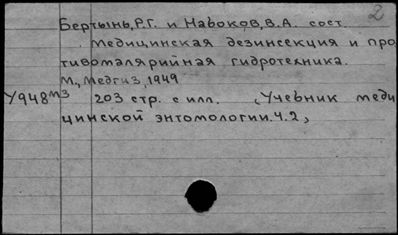 2
Бертынь,Р.Г. и Набоков,В.А. сост.
Медицинская дезинсекция и про
тивомалярийная гидротехника.
М., Медгиз, 1949
У948мз 203 стр. с илл. (Учебник меди
цинской энтомологии.Ч.2,